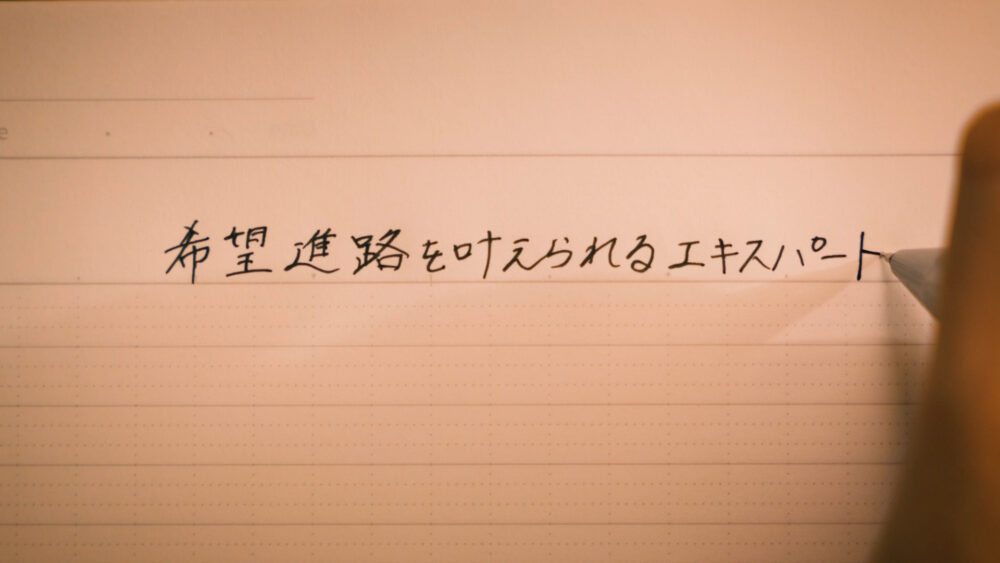 希望進路を叶えられるエキスパート